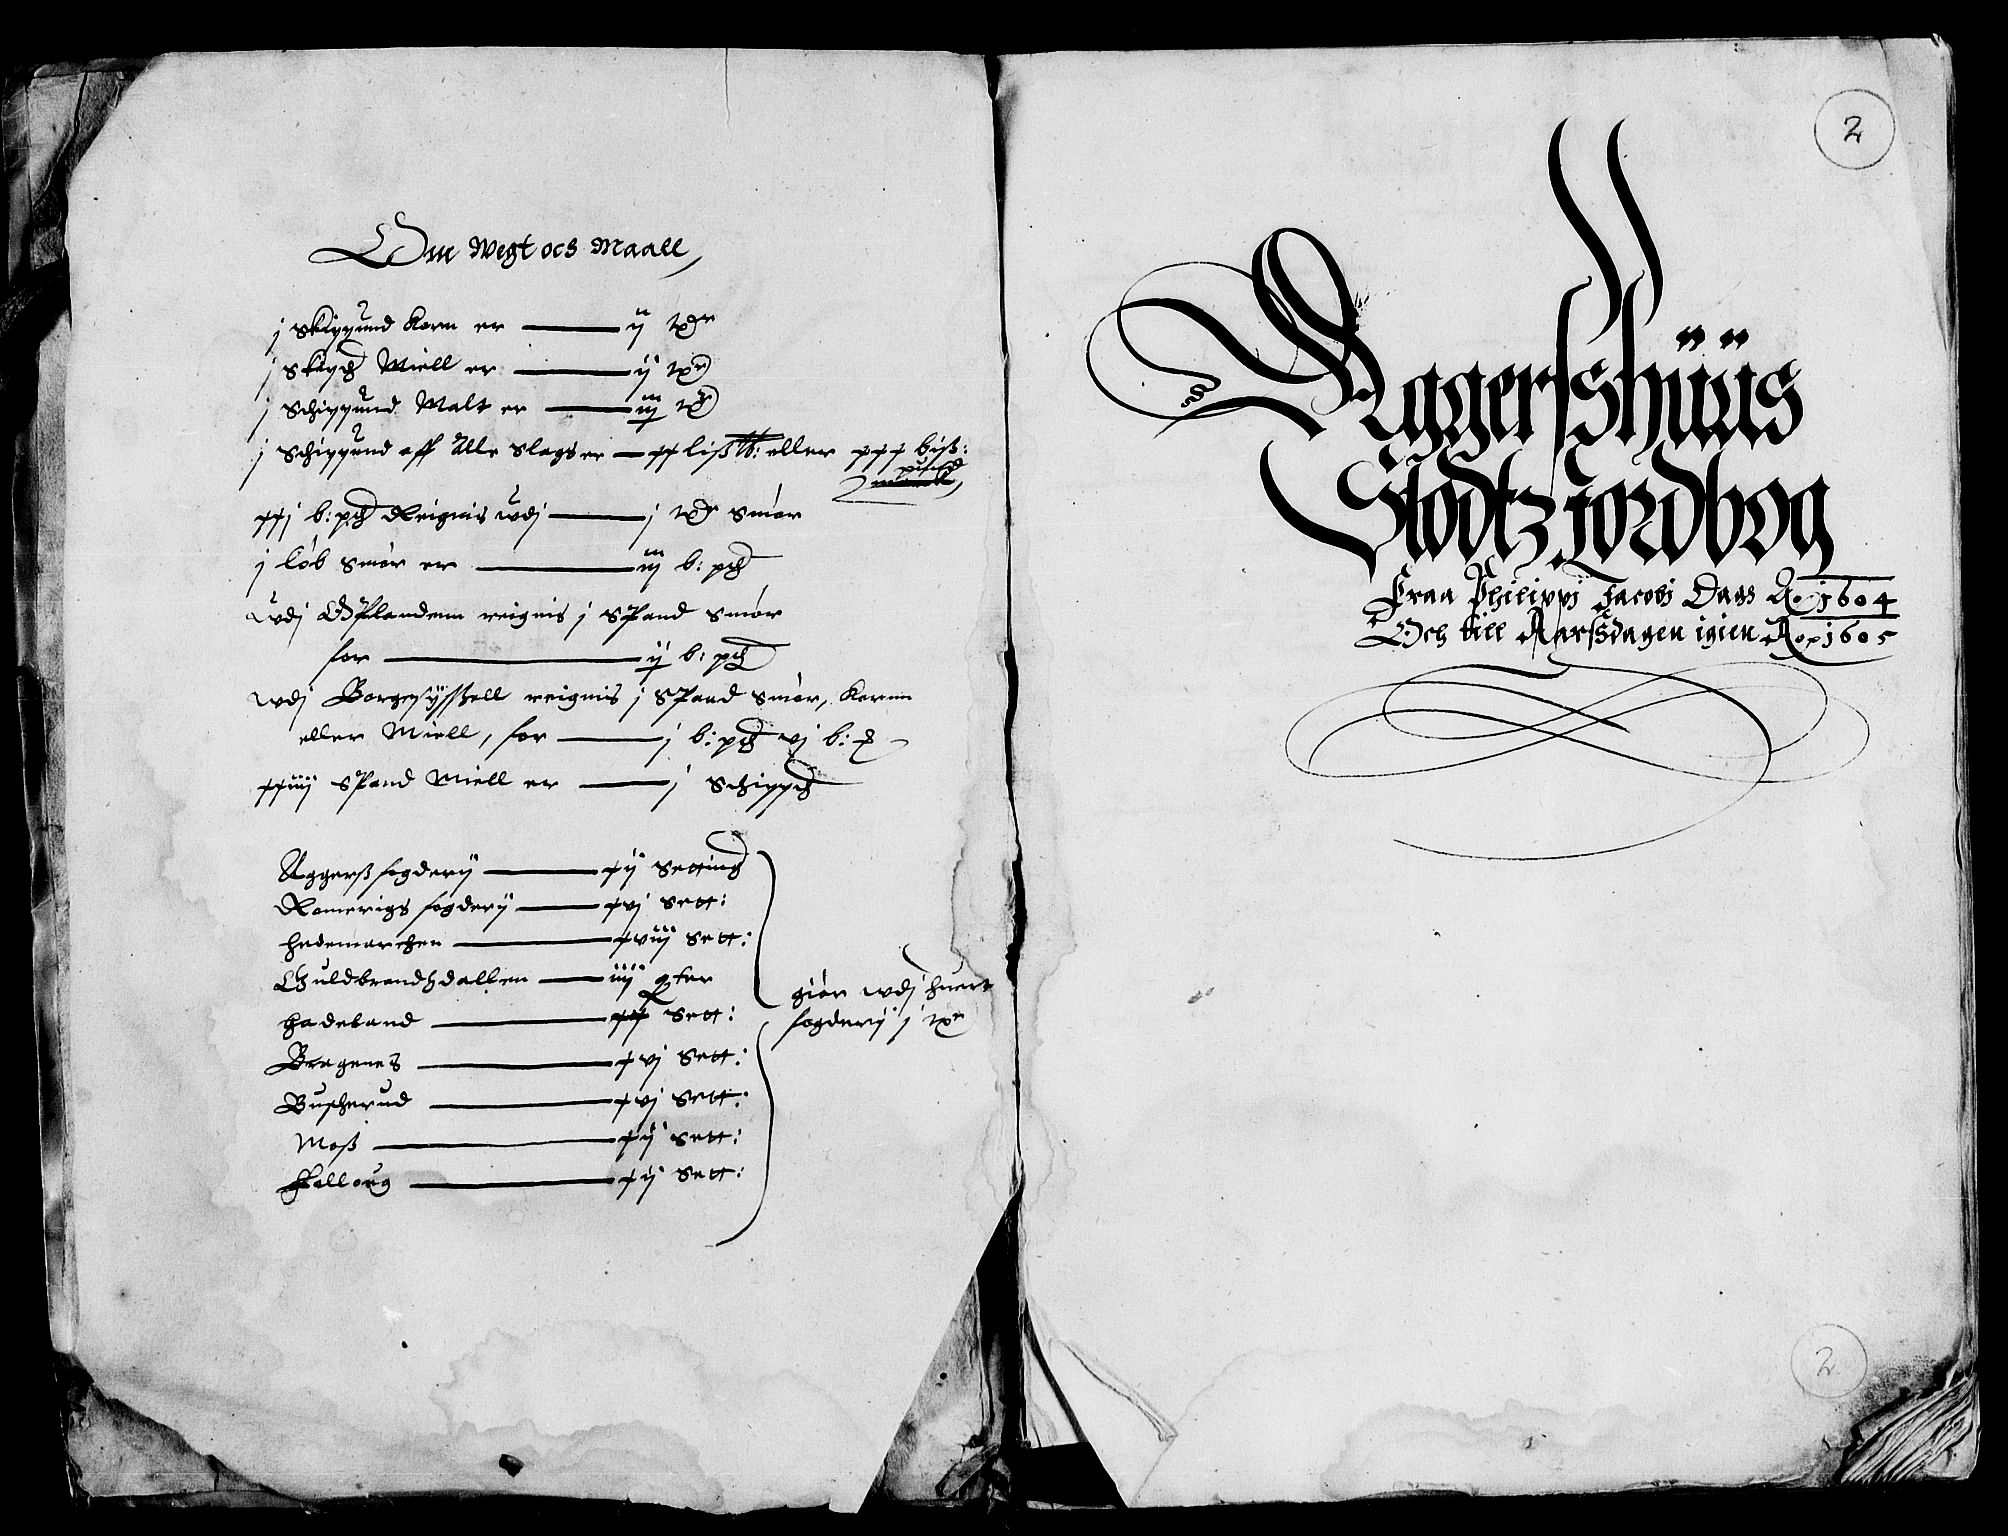 Om Wegt och Maall,
j Skippund Korn er — ij tdr
j Skipd Miell er — ij tdr
j Schippund Malt er — iij tdr
j Schippund aff alle slags er — xx liß ℔: eller xxx biß:
pund
xxj b: pd Reignis wdj — j tdr Smør
j Løb Smør er — iij b: pd
wdj Oplandenn reignis j Spand Smør
for — ij b: pd
wdj Borgesysßell reignis j Spand Smør, Kornn
eller Miell, for — j b: pd vj b:
xxiiij Spand Miell er — j Schippd
Aggerß fogderij — xij Setting
Romerigs fogderij — xvj Sett:
Hedemarchen — xviij Sett:
Guldbrandzdallen — iiij qter
Hadeland — xx Sett:
Bragenes — xvj Sett:
Buscherud — xvj Sett:
Moß — xij Sett:
Folloug — xij Sett:
giør wdj huert
fogderij j tdr
2
Aggersshuus
Slodtz Jordbog
Fraa Philippi Jacobi Dags Ao 1604
Och till Aarsdagen igien Ao 1605
2